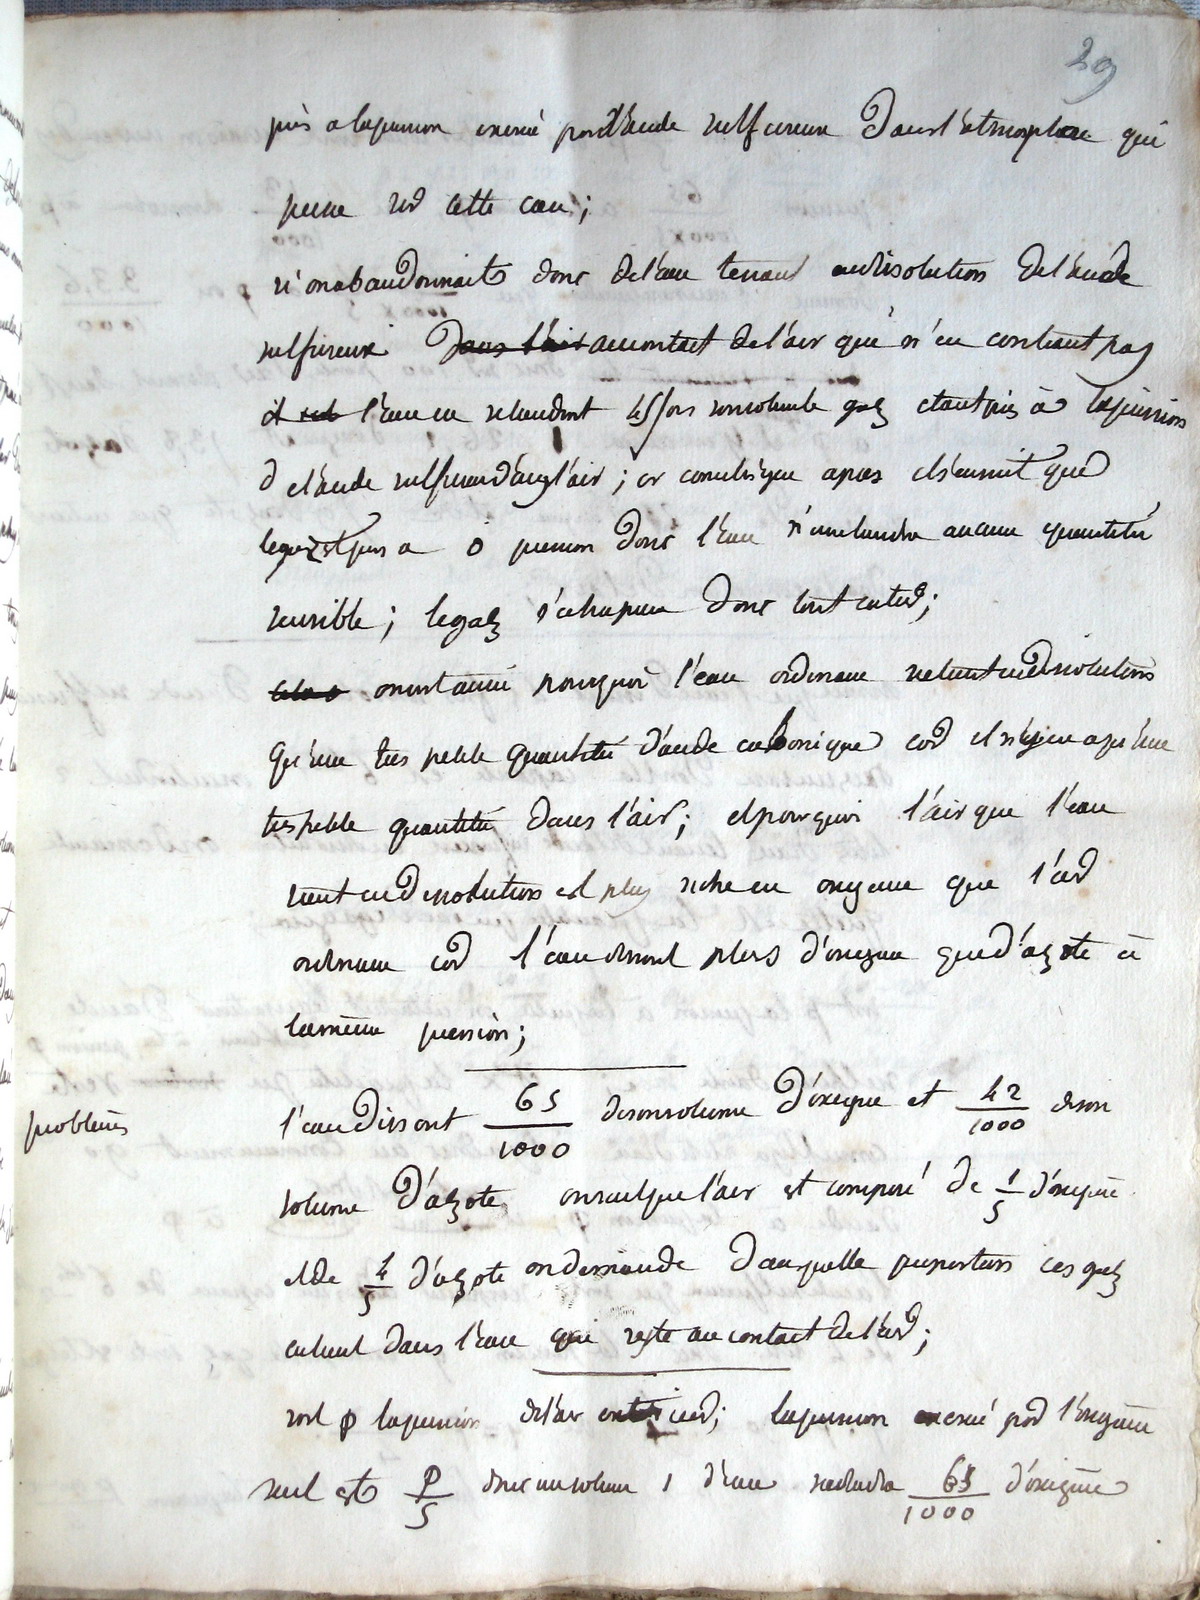 29
pris a la pression exercé par l'acide sulfureux dans l'atmosphère qui
pèse sur cette eau;
si on abandonnait donc de l'eau tenant en dissolution de l'acide
sulfureux dans l'air au contact de l'air qui n'en contient pas
l'eau en retiendroit 45 fois son volume gaz étant pris à la pression
de l'acide sulfureux dans l'air; or
le gaz est pris a 0 pression donc l'eau n'en retiendra aucune quantité
sensible; le gaz s'echapera donc tout entier;
on voit aussi pourquoi l'eau ordinaire ne tient en dissolution
qu'une tres petite quantité d'acide carbonique car il n'y en a qu'une
tres petite quantité dans l'air; et pourquoi l'air que l'eau
tient en dissolution est plus riche en oxigene que l'air
ordinaire car l'eau dissout plus d'oxigene que d'azote à
la même pression;
problèmes
l'eau dissout 65/1000 de son volume d'oxigene et 42/1000 de son
volume d'azote on sait que l'air est composé de 1/5 d'oxigene
et de 4/5 d'azote on demande dans quelle proportion ces gaz
entrent dans l'eau qui reste au contact de l'air;
soit p la pression de l'air entier; la pression exercé par l'oxigene
seul est p/5 donc un volume 1 d'eau 65/1000 d'oxigene